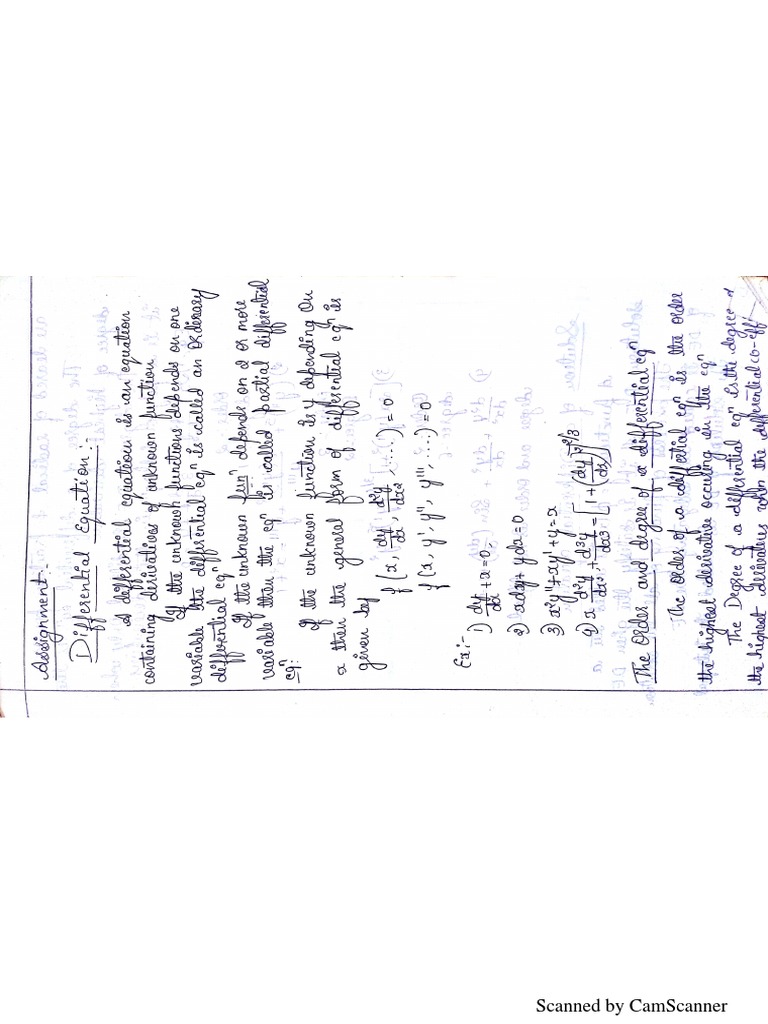 Assignment:-
Differential Equation:-
A differential equation is an equation
containing derivatives of unknown function.
If the unknown functions depends on one
variable the differential eqⁿ is called an ordinary
differential eqⁿ
If the unknown funⁿ depends on 2 or more
variable then the eqⁿ is called partial differential
eqⁿ.
If the unknown function is y depending on
x then the general form of differential eqⁿ is
given by
f(x, dy/dx, d²y/dx², ....) = 0
f(x, y', y'', y''', ....) = 0
Ex:-
1) dy/dx + x = 0,
2) xdy + ydx = 0
3) x²y'' + xy' + y = x
4) x d²y/dx² + d³y/dx³ = [1 + (dy/dx)²]^2/3
The Order and degree of a differential eqⁿ
The order of a diffetial eqⁿ is the order
the highest derivative occuring in the eqⁿ
The Degree of a differential eqⁿ is the degree of
the highest derivatives when the differential co-effi
Scanned by CamScanner